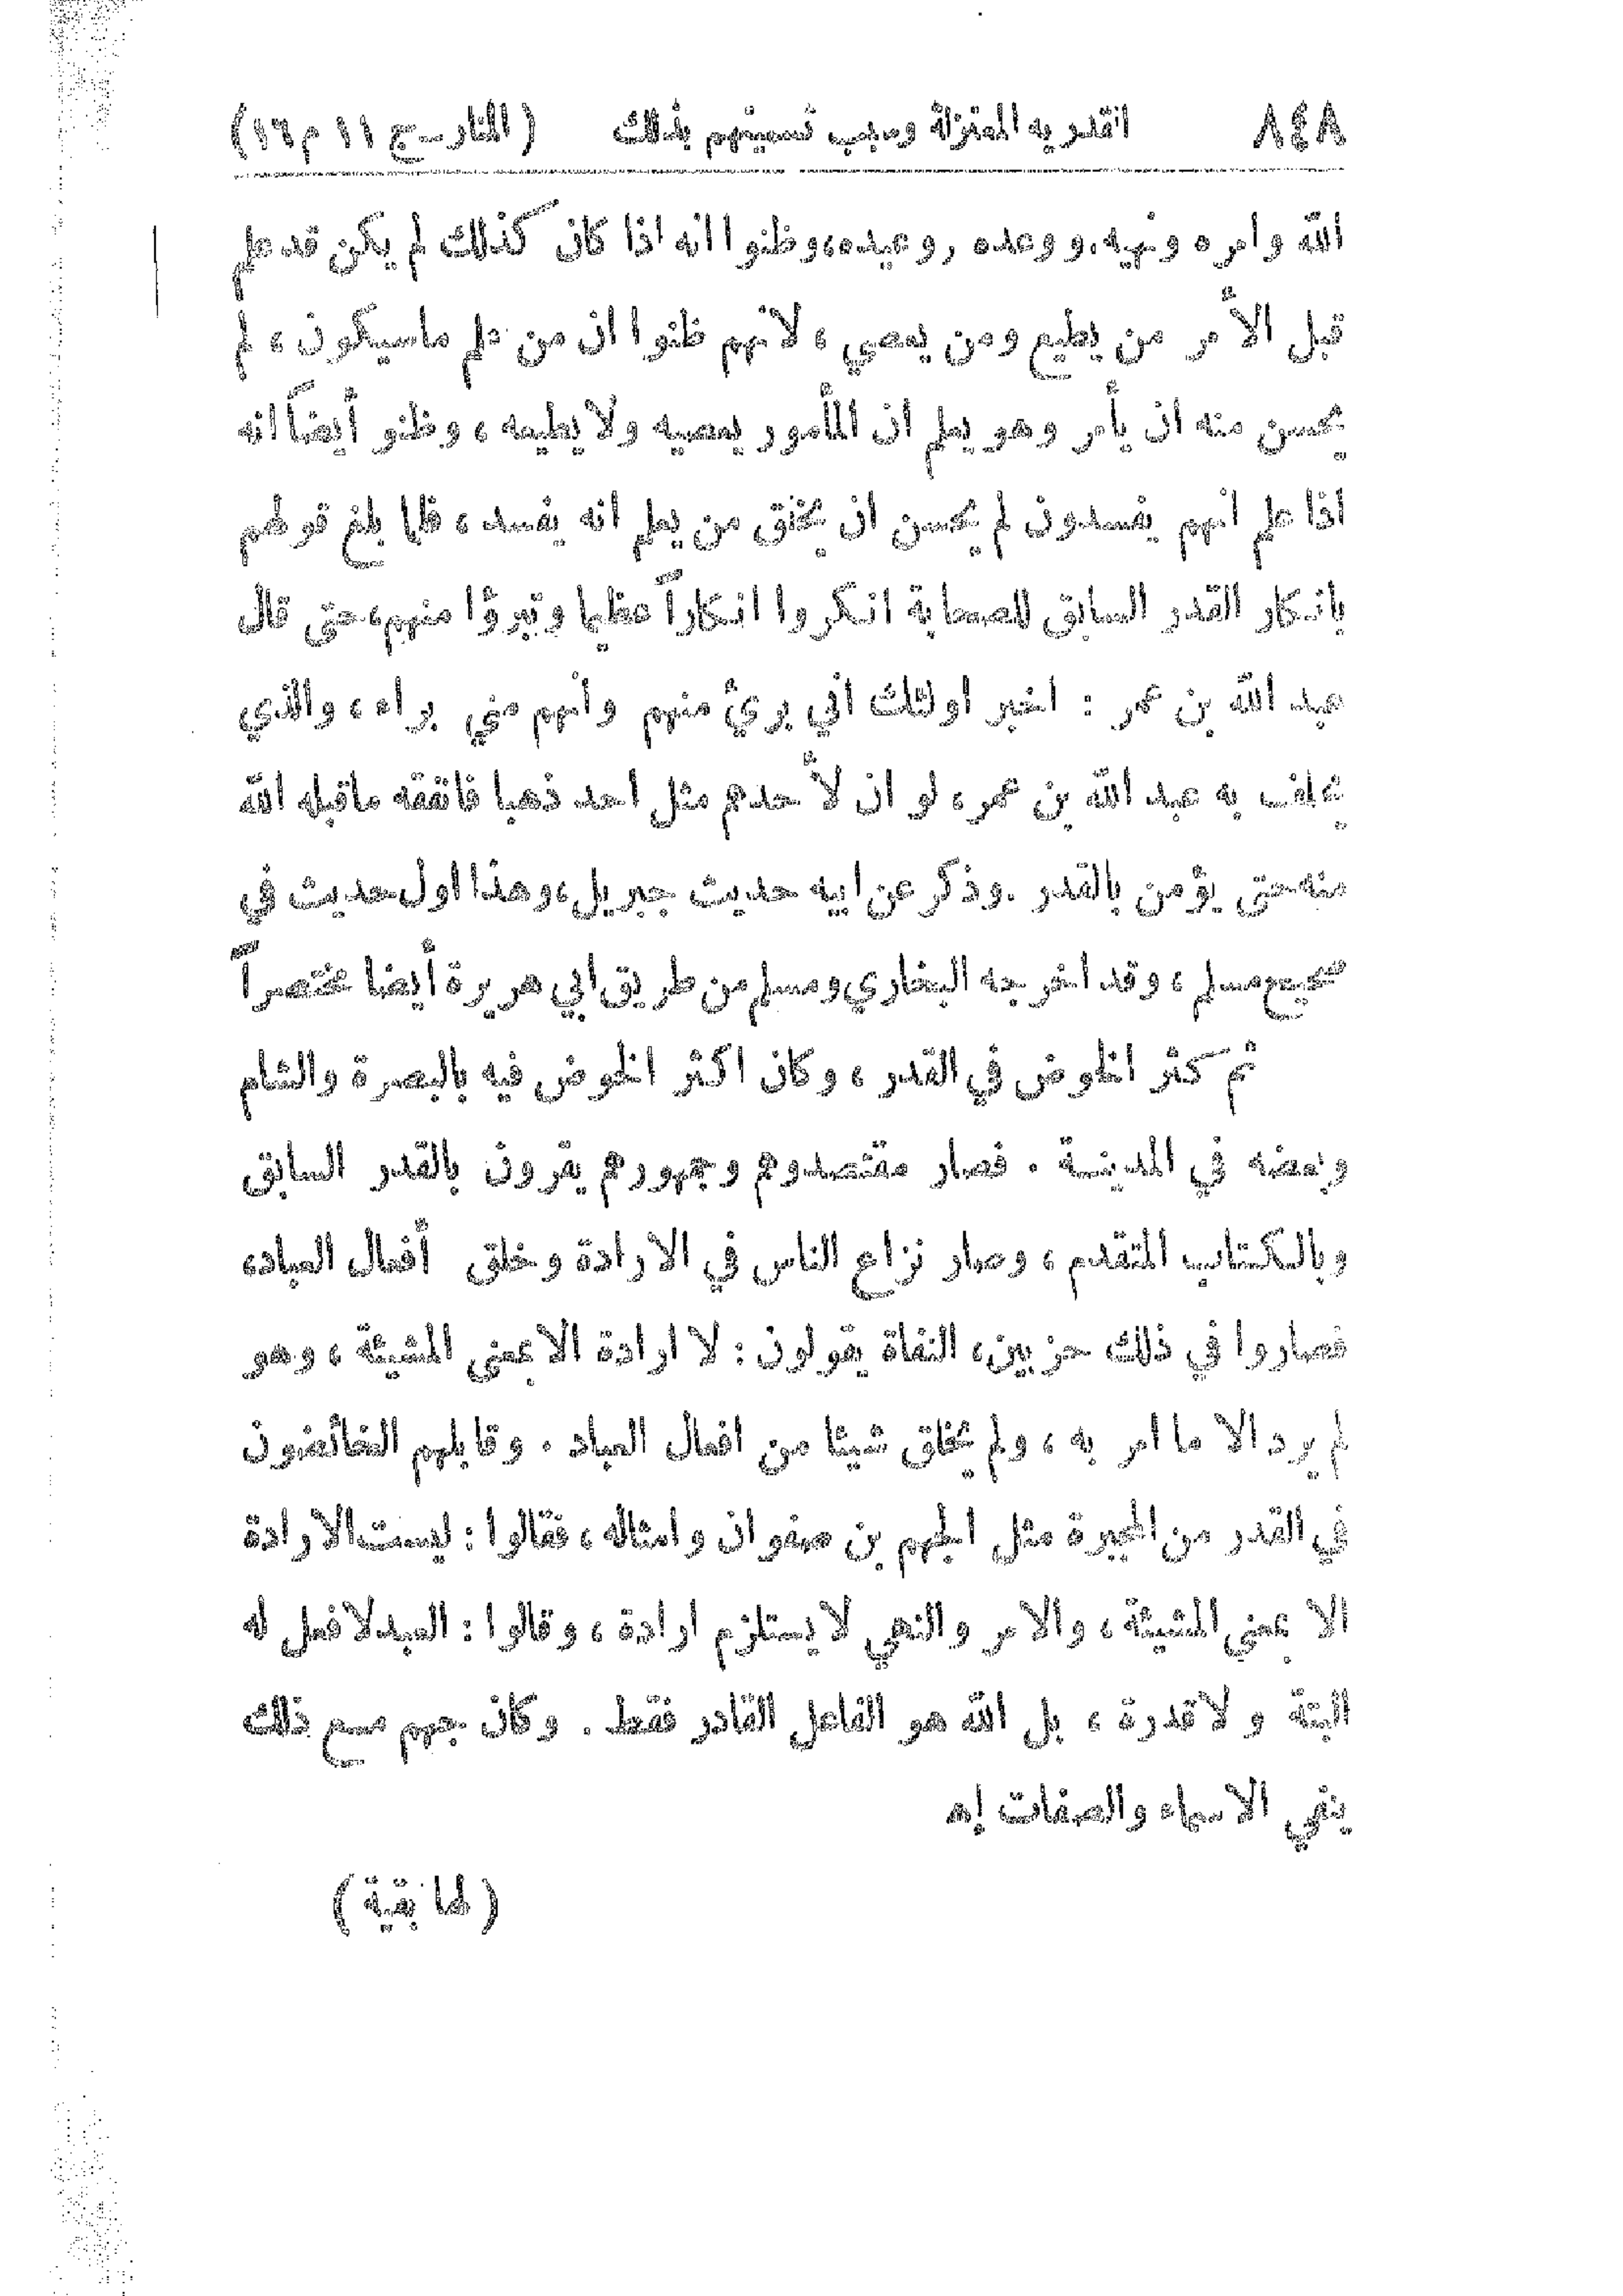 ٨٤٨ القدرية المعتزلة وسبب تسميتهم بذلك (المنار ـ ج ١١ م ١٦)
الله وامره ونهيه. ووعده ووعيده، وظنوا انه اذا كان كذلك لم يكن قد علم
قبل الأمر من يطيع ومن يعصي، لانهم ظنوا ان من علم ماسيكون، لم
يحسن منه ان يأمر وهو يعلم ان المأمور يعصيه ولا يطيعه، وظنو أيضاً انه
اذا علم انهم يفسدون لم يحسن ان يخلق من يعلم انه يفسد، فلما بلغ قولهم
بانكار القدر السابق للصحابة انكروا انكاراً عظيما وتبرؤا منهم، حتى قال
عبد الله بن عمر : اخبر اولئك اني بريء منهم وأنهم مني براء، والذي
يحلف به عبد الله بن عمر، لو ان لأحدهم مثل احد ذهبا فانفقه ماقبله الله
منه حتى يؤمن بالقدر. وذكر عن ابيه حديث جبريل، وهذا اول حديث في
صحيح مسلم، وقد اخرجه البخاري ومسلم من طريق ابي هريرة أيضا مختصراً
ثم كثر الخوض في القدر، وكان اكثر الخوض فيه بالبصرة والشام
وبعضه في المدينة . فصار مقتصدوهم وجمهورهم يقرون بالقدر السابق
وبالكتاب المتقدم، وصار نزاع الناس في الارادة وخلق أفعال العباد،
فصاروا في ذلك حزبين، النفاة يقولون : لا ارادة الا بمعنى المشيئة، وهو
لم يرد الا ما امر به، ولم يخلق شيئا من افعال العباد . وقابلهم الخائضون
في القدر من المجبرة مثل الجهم بن صفوان وامثاله، فقالوا : ليست الارادة
الا بمعنى المشيئة، والامر والنهي لا يستلزم ارادة، وقالوا : العبد لا فعل له
البتة ولا قدرة، بل الله هو الفاعل القادر فقط . وكان جهم مع ذلك
ينفي الاسماء والصفات إه
(لها بقية)